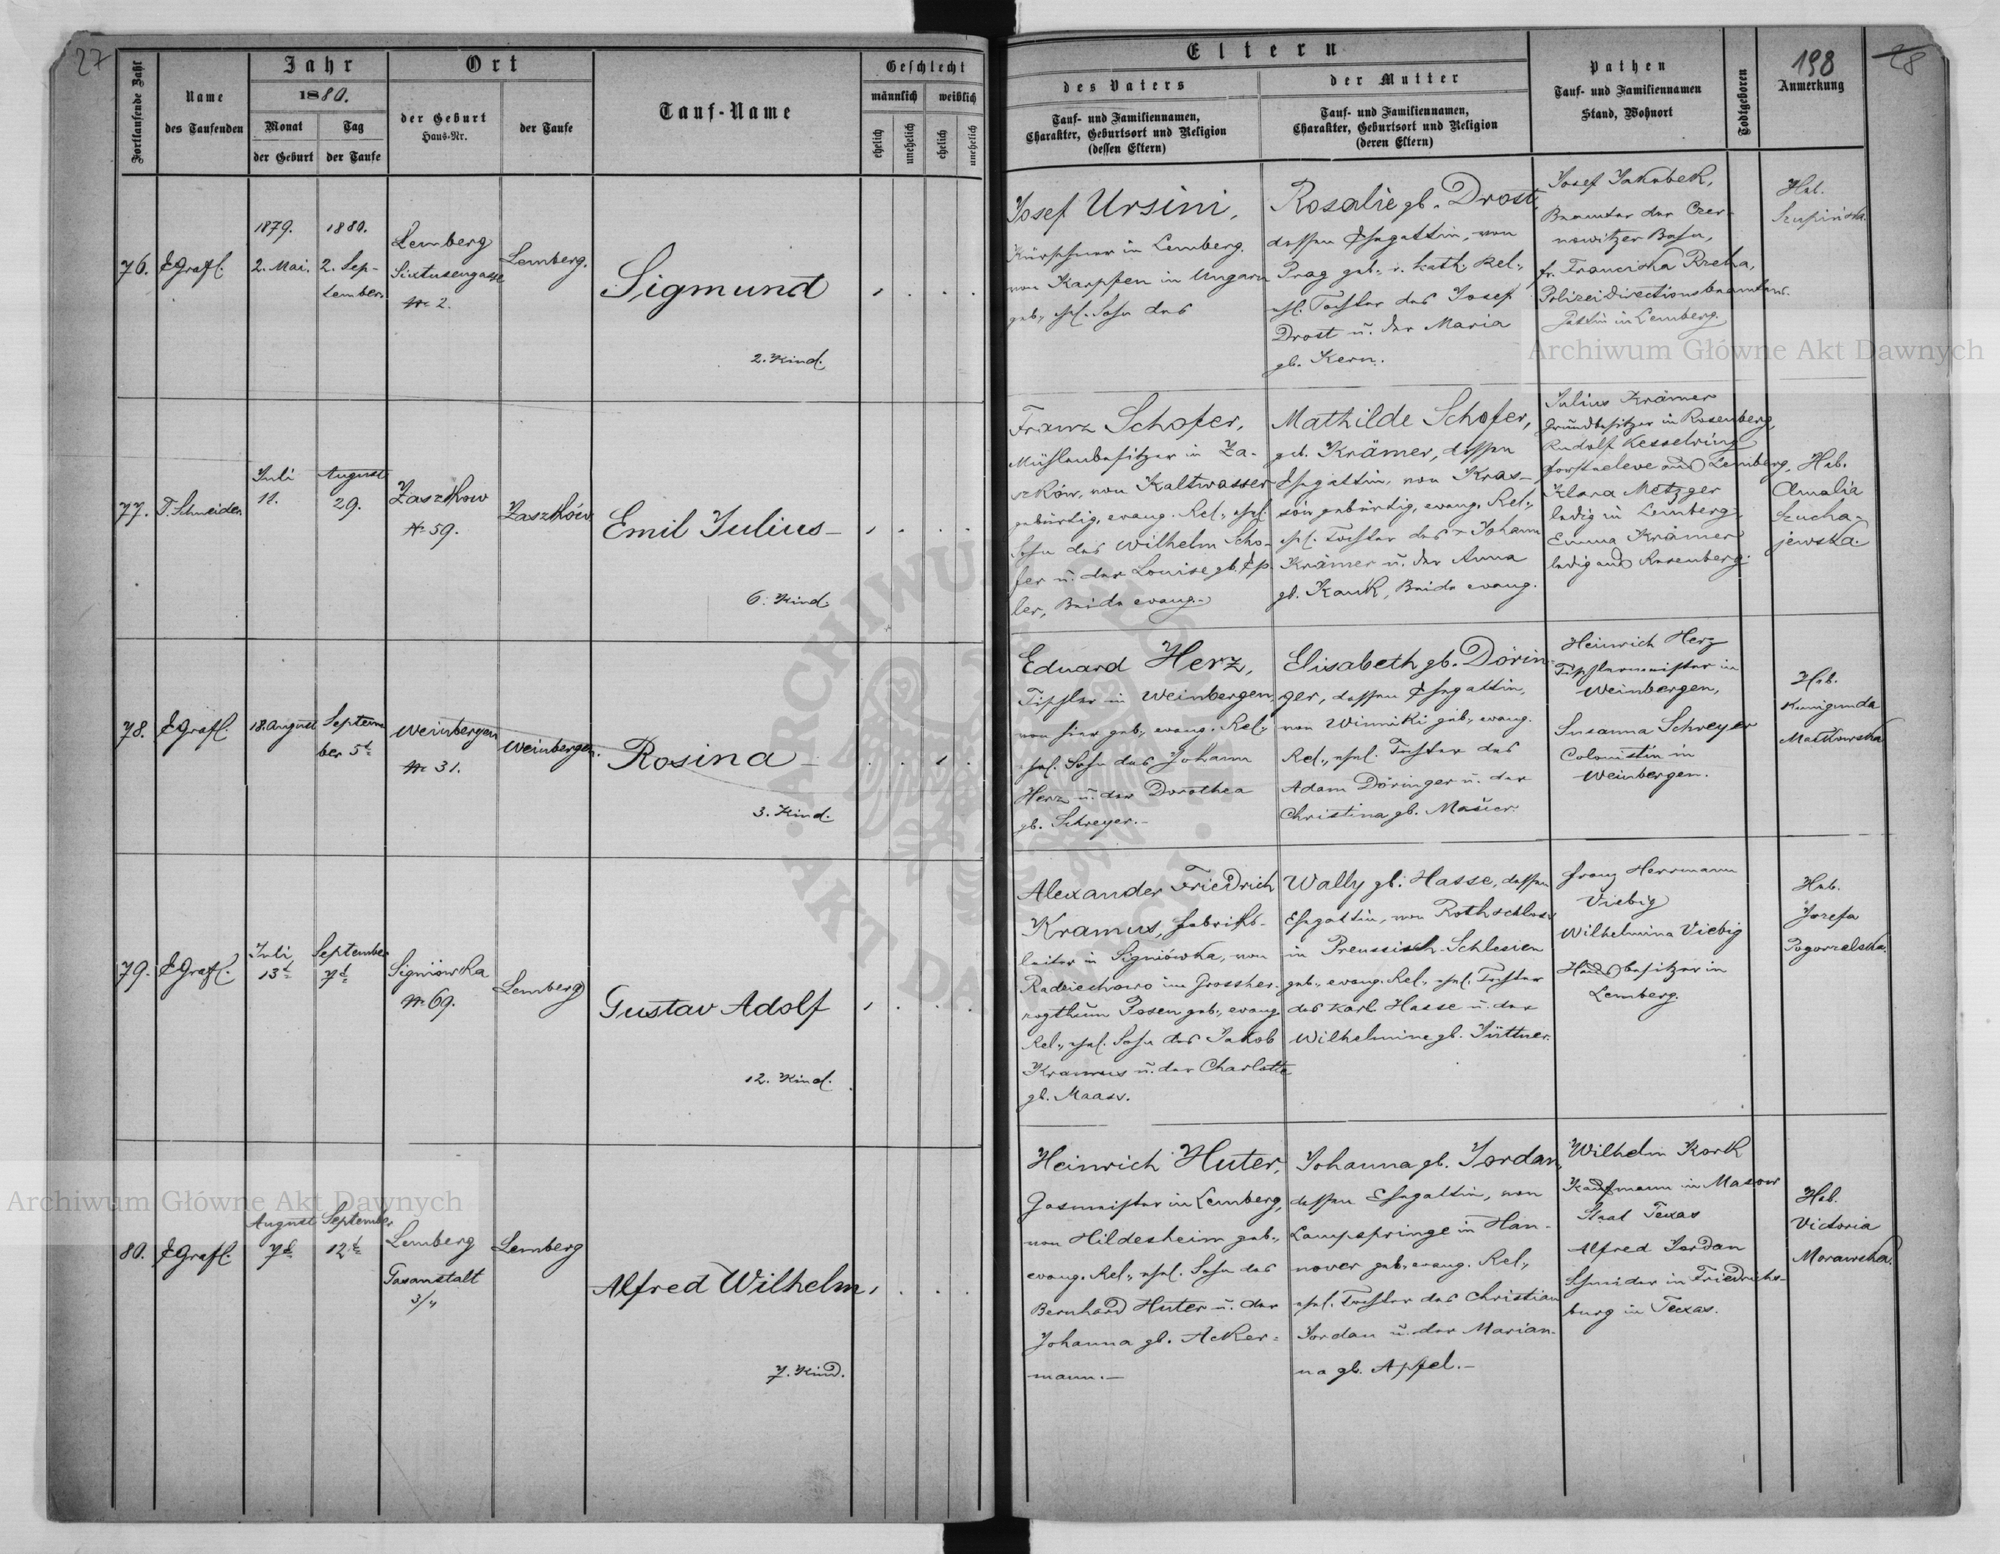 27
Fortlaufende Zahl
Name
des Taufenden
Jahr
1880.
Monat
der Geburt
Tag
der Taufe
Ort
der Geburt
Haus-Nr.
der Taufe
Tauf-Name
Geschlecht
männlich
weiblich
ehelich
unehelich
ehelich
unehelich
Eltern
des Vaters
Tauf- und Familiennamen,
Charakter, Geburtsort und Religion
(dessen Eltern)
der Mutter
Tauf- und Familiennamen,
Charakter, Geburtsort und Religion
(deren Eltern)
Pathen
Tauf- und Familiennamen
Stand, Wohnort
Todtgeboren
198
Anmerkung
28
76.
1879.
2. Mai.
1880.
2. Sep-
tember.
Lemberg
Sixtusengasse
№ 2.
Lemberg.
Sigmund
2. Kind.
Josef Ursini,
Kürschner in Lemberg.
von Karpfen in Ungarn
geb., ehel. Sohn des
Rosalie gb. Drost,
dessen Ehegattin, von
Prag geb., r. kath. Rel.,
ehl. Tochter des Josef
Drost u. der Maria
gb. Kern.
Josef Jakubek,
Beamter der Czer-
nowitzer Bahn,
fr. Franciska
Polizeidirectionsbeamtens
Gattin in Lemberg.
Heb.
77.
T. Schneider.
Juli
11.
August
29.
Zaszkow
№ 59.
Zaszków
Emil Julius
6. Kind
Franz Schofer,
Mühlenbesitzer in Za-
szków, von Kaltwasser
gebürtig, evang. Rel., ehel.
Sohn des Wilhelm Scho-
fer u. der Louise gb. Ep-
ler, Beide evang.
Mathilde Schofer,
geb. Krämer, dessen
Ehegattin, von Kras-
sów gebürtig, evang. Rel.,
ehl. Tochter des Johann
Krämer u. der Anna
gb. Kauk, Beide evang.
Julius Krämer
Grundbesitzer in Rosenberg,
Rudolf Kesselring
Forsteleve aus Lemberg,
Klara Metzger
ledig in Lemberg,
Emma Krämer
ledig aus Rosenberg.
Heb.
Amalia
Sucha-
jewska.
78.
18. August
Septem
ber 5t
Weinbergen
№ 31.
Weinbergen.
Rosina
3. Kind.
Eduard Herz,
Tischler in Weinbergen,
von hier geb., evang. Rel.,
ehel. Sohn des Johann
Herz u. der Dorothea
gb. Schreyer.
Elisabeth gb. Dörin-
ger, dessen Ehegattin,
von Winniki geb., evang.
Rel., ehel. Tochter des
Adam Döringer u. der
Christina gb. Mauer.
Heinrich Herz
Tischlermeister in
Weinbergen,
Susanna Schreyer
Colonistin in
Weinbergen.
Heb.
Kunigunda
Malkowska
79.
Juli
13t
September
7t
Signiówka
№ 69.
Lemberg
Gustav Adolf
12. Kind.
Alexander Friedrich
Kramus, Fabriks-
leiter in Signiówka, von
Radziechowo im Grossher-
zogthum Posen geb., evang.
Rel., ehel. Sohn des Jakob
Kramus u. der Charlotte
gb. Maass.
Wally gb. Hasse, dessen
Ehegattin, von Rothschloss
in Preussisch-Schlesien
geb., evang. Rel., ehel. Tochter
des Karl Hasse u. der
Wilhelmine gb. Jüttner.
Franz Herrmann
Viebig
Wilhelmina Viebig
Hausbesitzer in
Lemberg.
Heb.
Jozefa
Pogorzelska.
80.
August
7t
September
12t
Lemberg
Gasanstalt
Lemberg
Alfred Wilhelm
7. Kind.
Heinrich Huter,
Gasmeister in Lemberg,
von Hildesheim geb.,
evang. Rel., ehel. Sohn des
Bernhard Huter u. der
Johanna gb. Acker-
mann.
Johanna gb. Jordan,
dessen Ehegattin, von
Lampspringe in Han-
nover geb., evang. Rel.,
ehel. Tochter des Christian
Jordan u. der Marian-
na gb. Apfel.
Wilhelm Kork
Kaufmann in Mason
Staat Texas
Alfred Jordan
Schneider in Friedrichs-
burg in Texas.
Heb.
Victoria
Morawska.
Archiwum Główne Akt Dawnych
Archiwum Główne Akt Dawnych